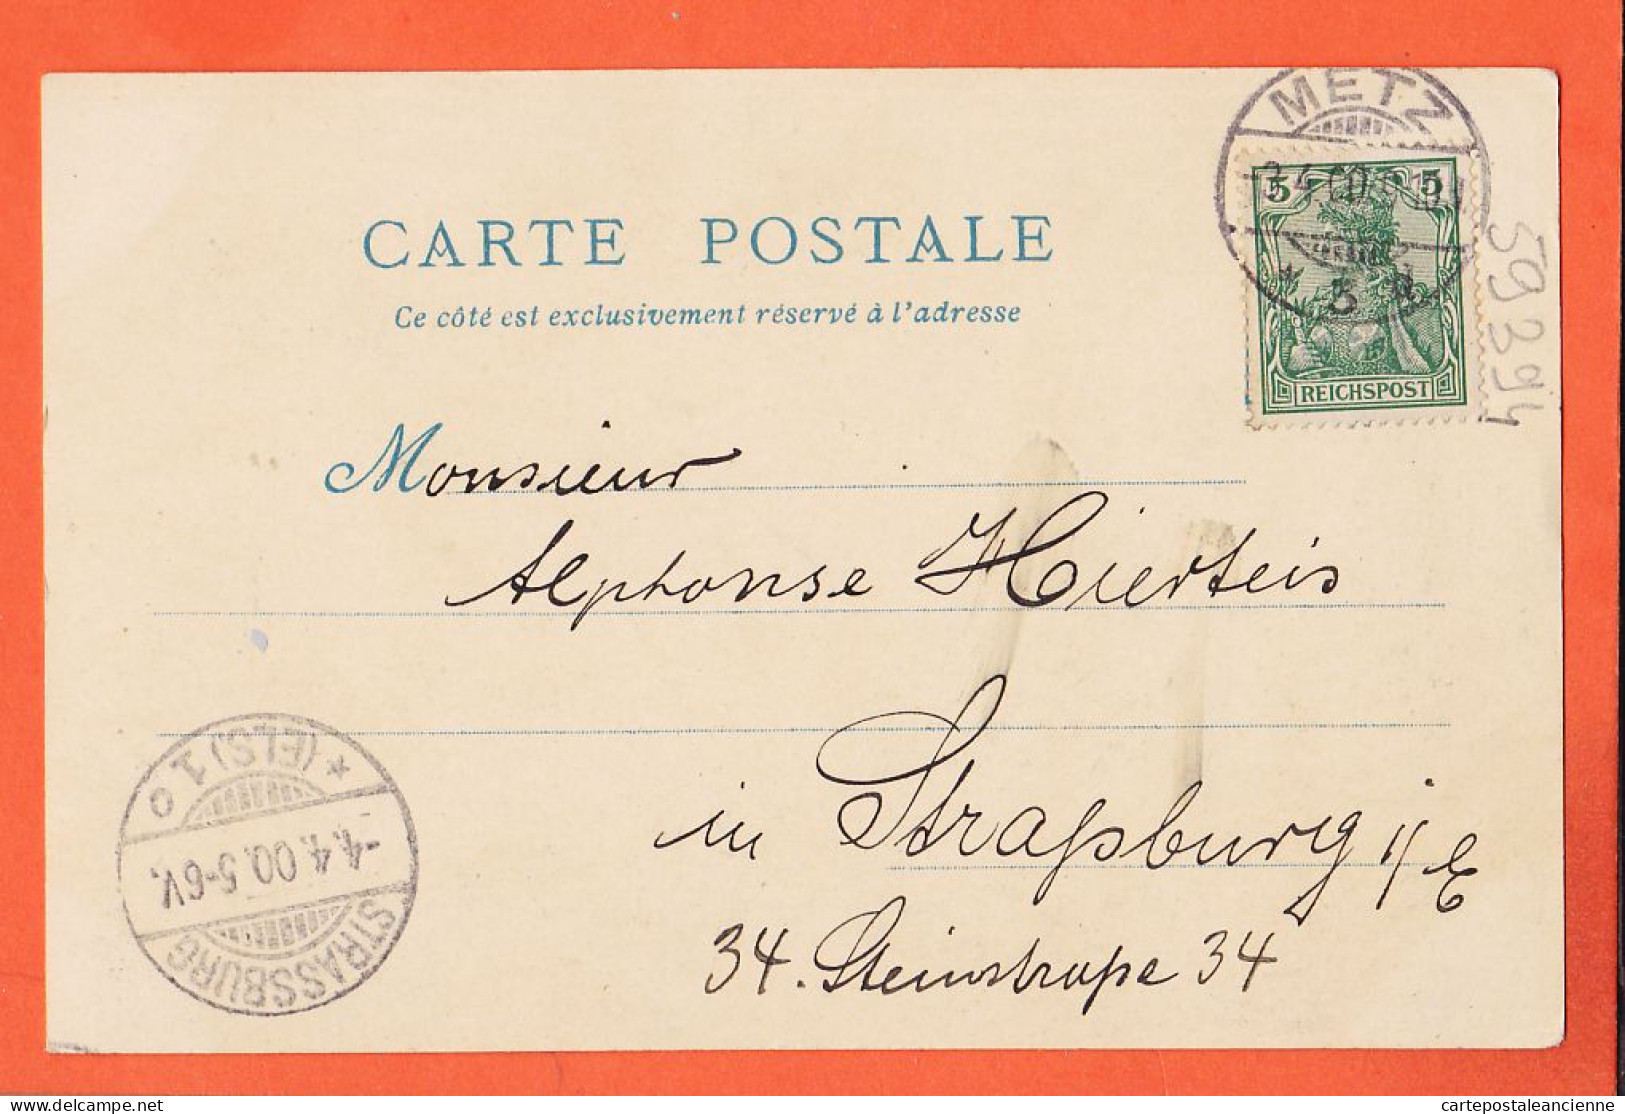 METZ
5 5
-3.4.00
3
REICHSPOST
59394
CARTE POSTALE
Ce côté est exclusivement réservé à l'adresse
Monsieur
Alphonse Hierteis
in Straßburg i/E
34. Steinstraße 34
STRASSBURG
-4.4.00.5-6V.
* (ELS) 10
cartepostaleancienne
www.delcampe.net